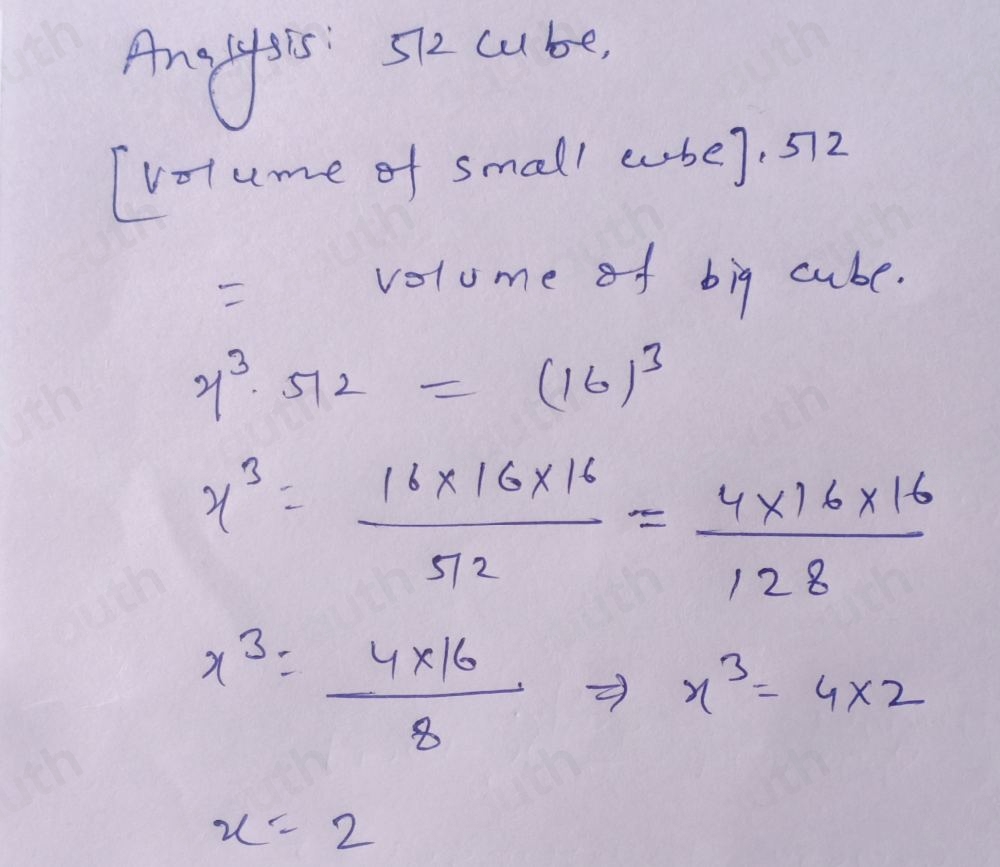 Analysis: 512 cube.
[volume of small cube]. 512
= volume of big cube.
x³. 512 = (16)³
x³ = 16×16×16 / 512 = 4×16×16 / 128
x³ = 4×16 / 8 ⇒ x³ = 4×2
x = 2